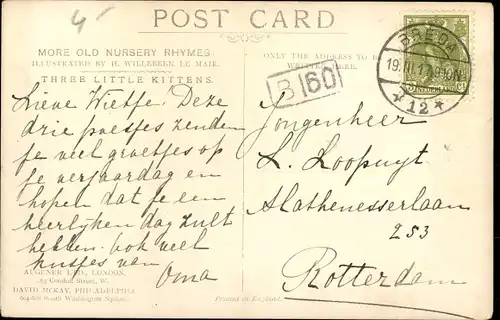 4
POST CARD
MORE OLD NURSERY RHYMES
ILLUSTRATED BY H. WILLEBEEK LE MAIR.
THREE LITTLE KITTENS.
Lieve Wietse! Deze
drie poesjes zenden
je veel groetjes op
je verjaardag en
hopen dat je een
heerlijken dag zult
hebben. Ook veel
kusjes van
Oma
AUGENER LTD., LONDON.
63 Conduit Street, W.
DAVID McKAY, PHILADELPHIA
604-608 South Washington Square.
ONLY THE ADDRESS TO BE
WRITTEN HERE.
B 160
BREDA
12
NEDERLAND
Jongenheer
L. Loopuyt
Mathenesserlaan
253
Rotterdam
Printed in England.